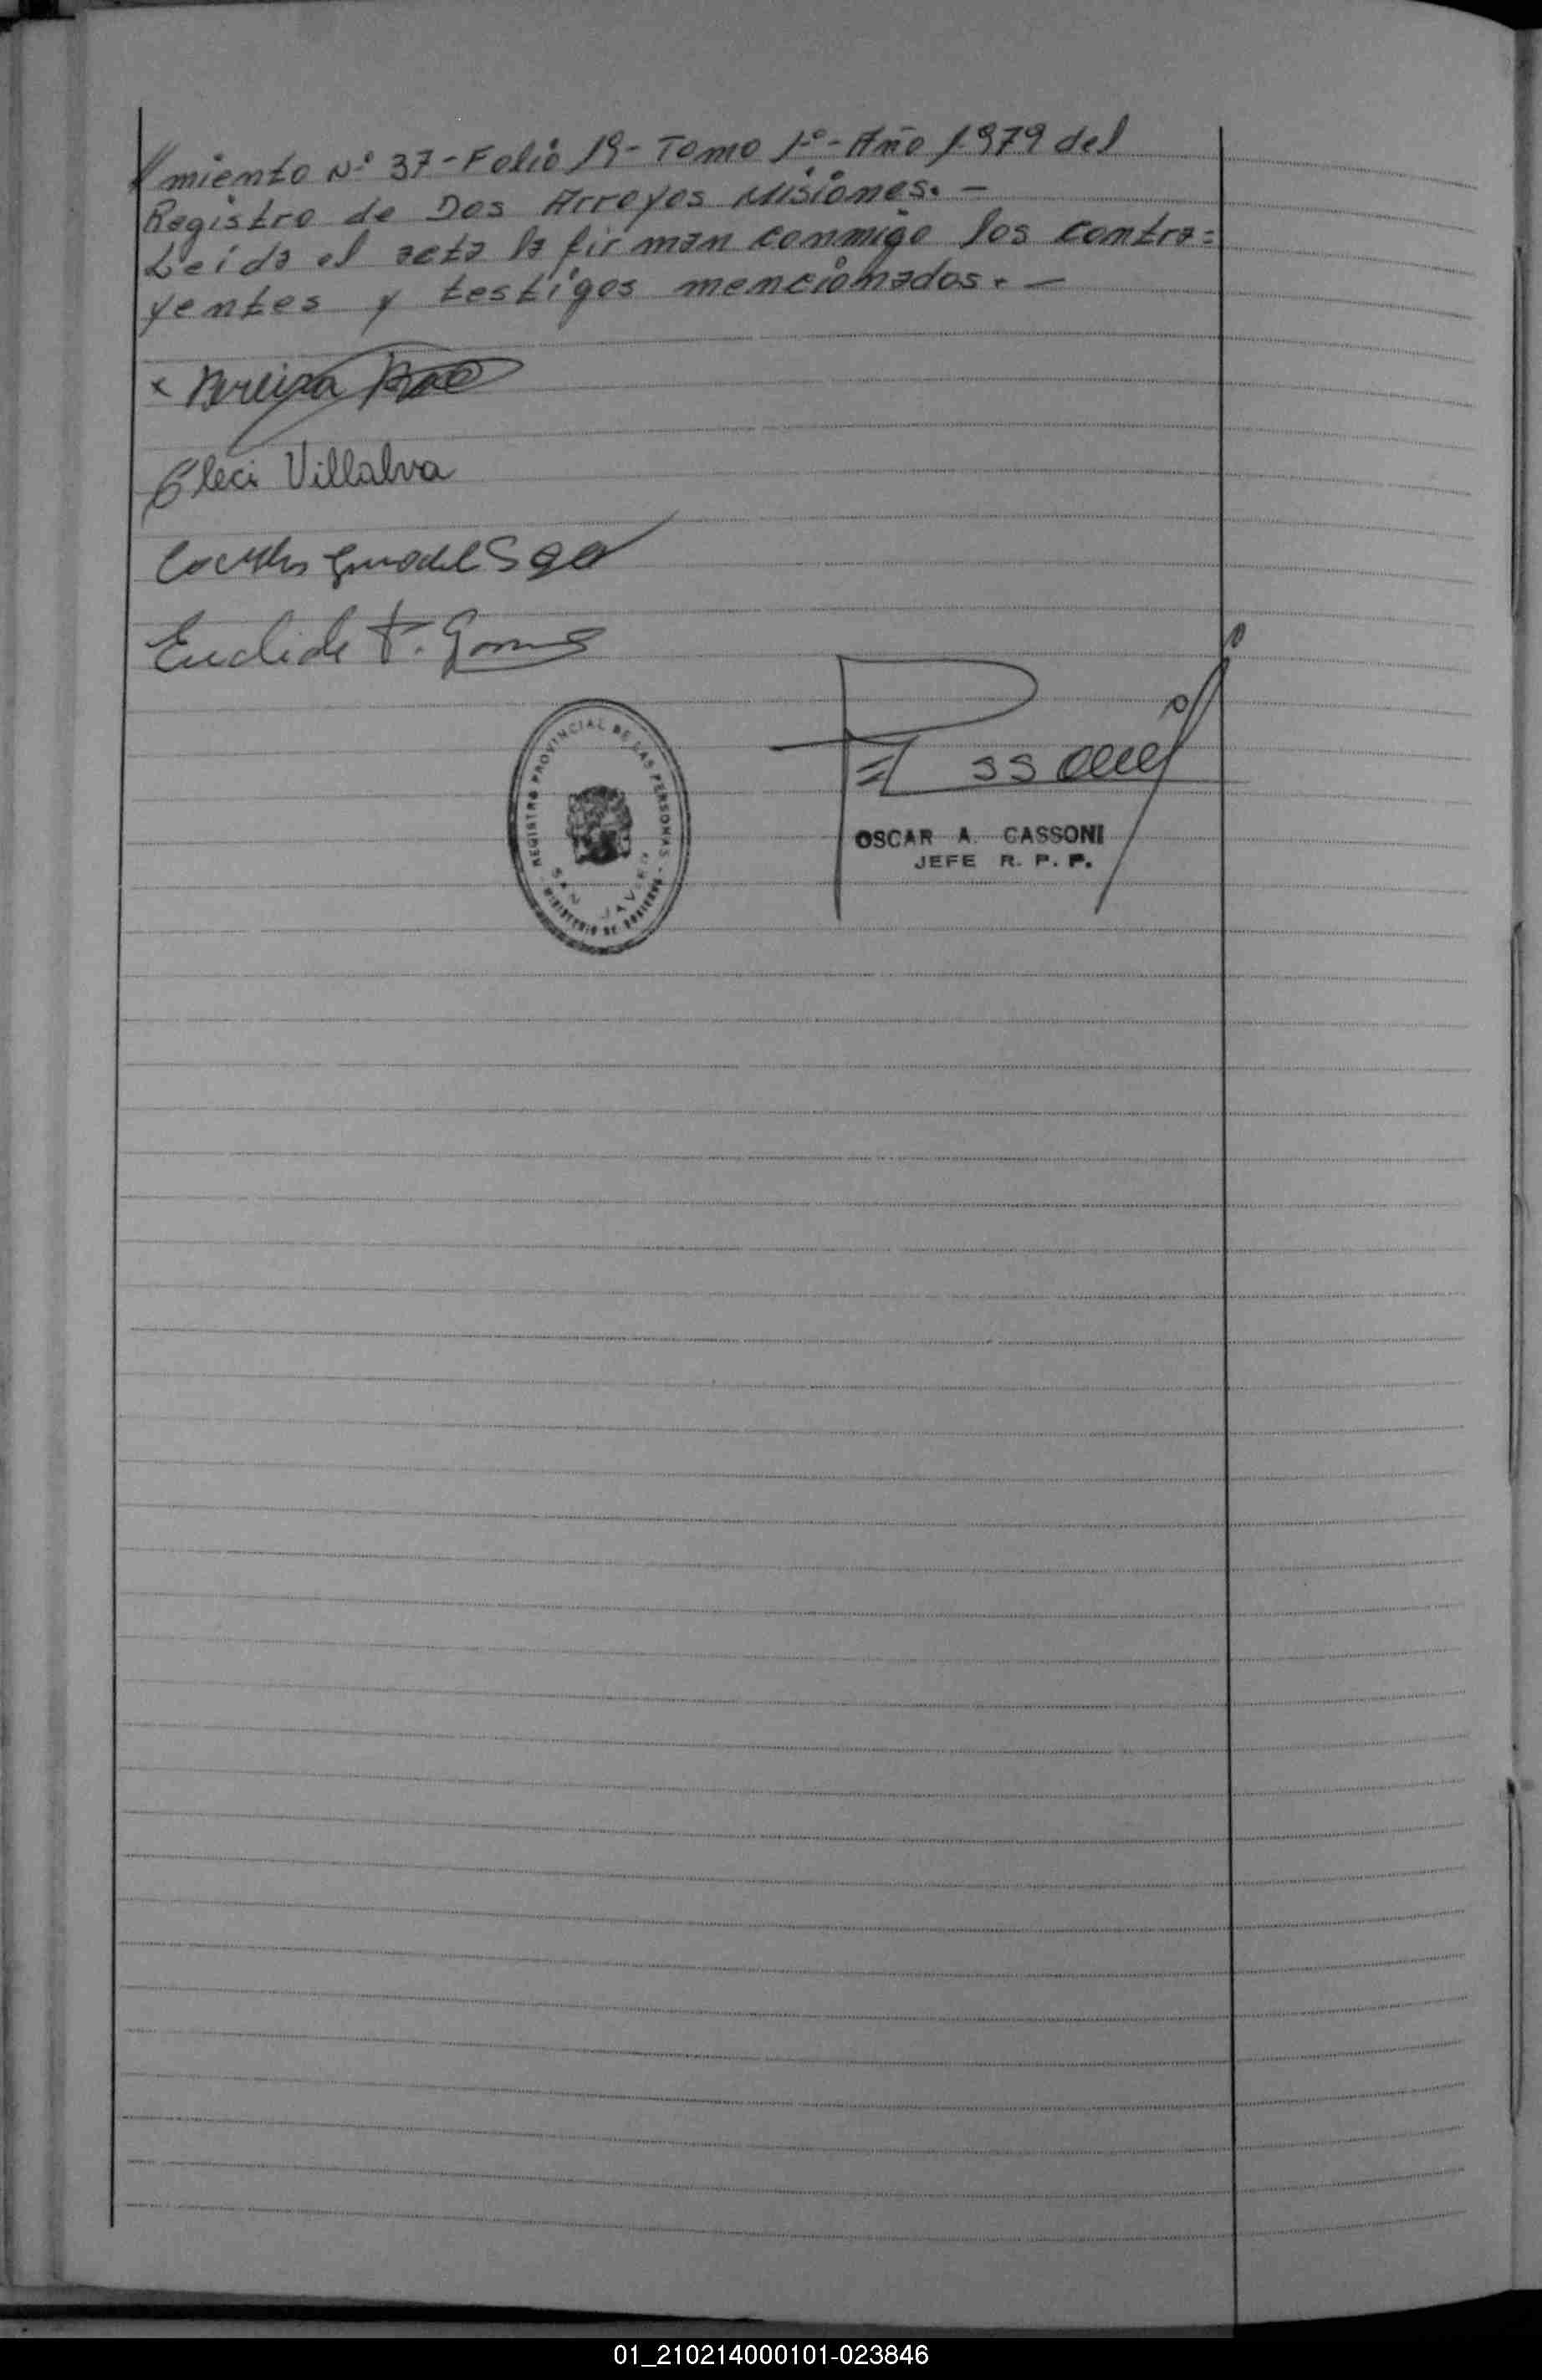 //miento Nº 37-Folio 19- Tomo 1º-Año 1.979 del
Registro de Dos Arroyos Misiones. -
Leída el acta la firman conmigo los contra=
yentes y testigos mencionados. -
x Pereira
Cleci Villalva
Euclide F. Gomes
REGISTRO PROVINCIAL DE LAS PERSONAS - MINISTERIO DE GOBIERNO -
SAN JAVIER
OSCAR A. CASSONI
JEFE R. P. P.
01_210214000101-023846